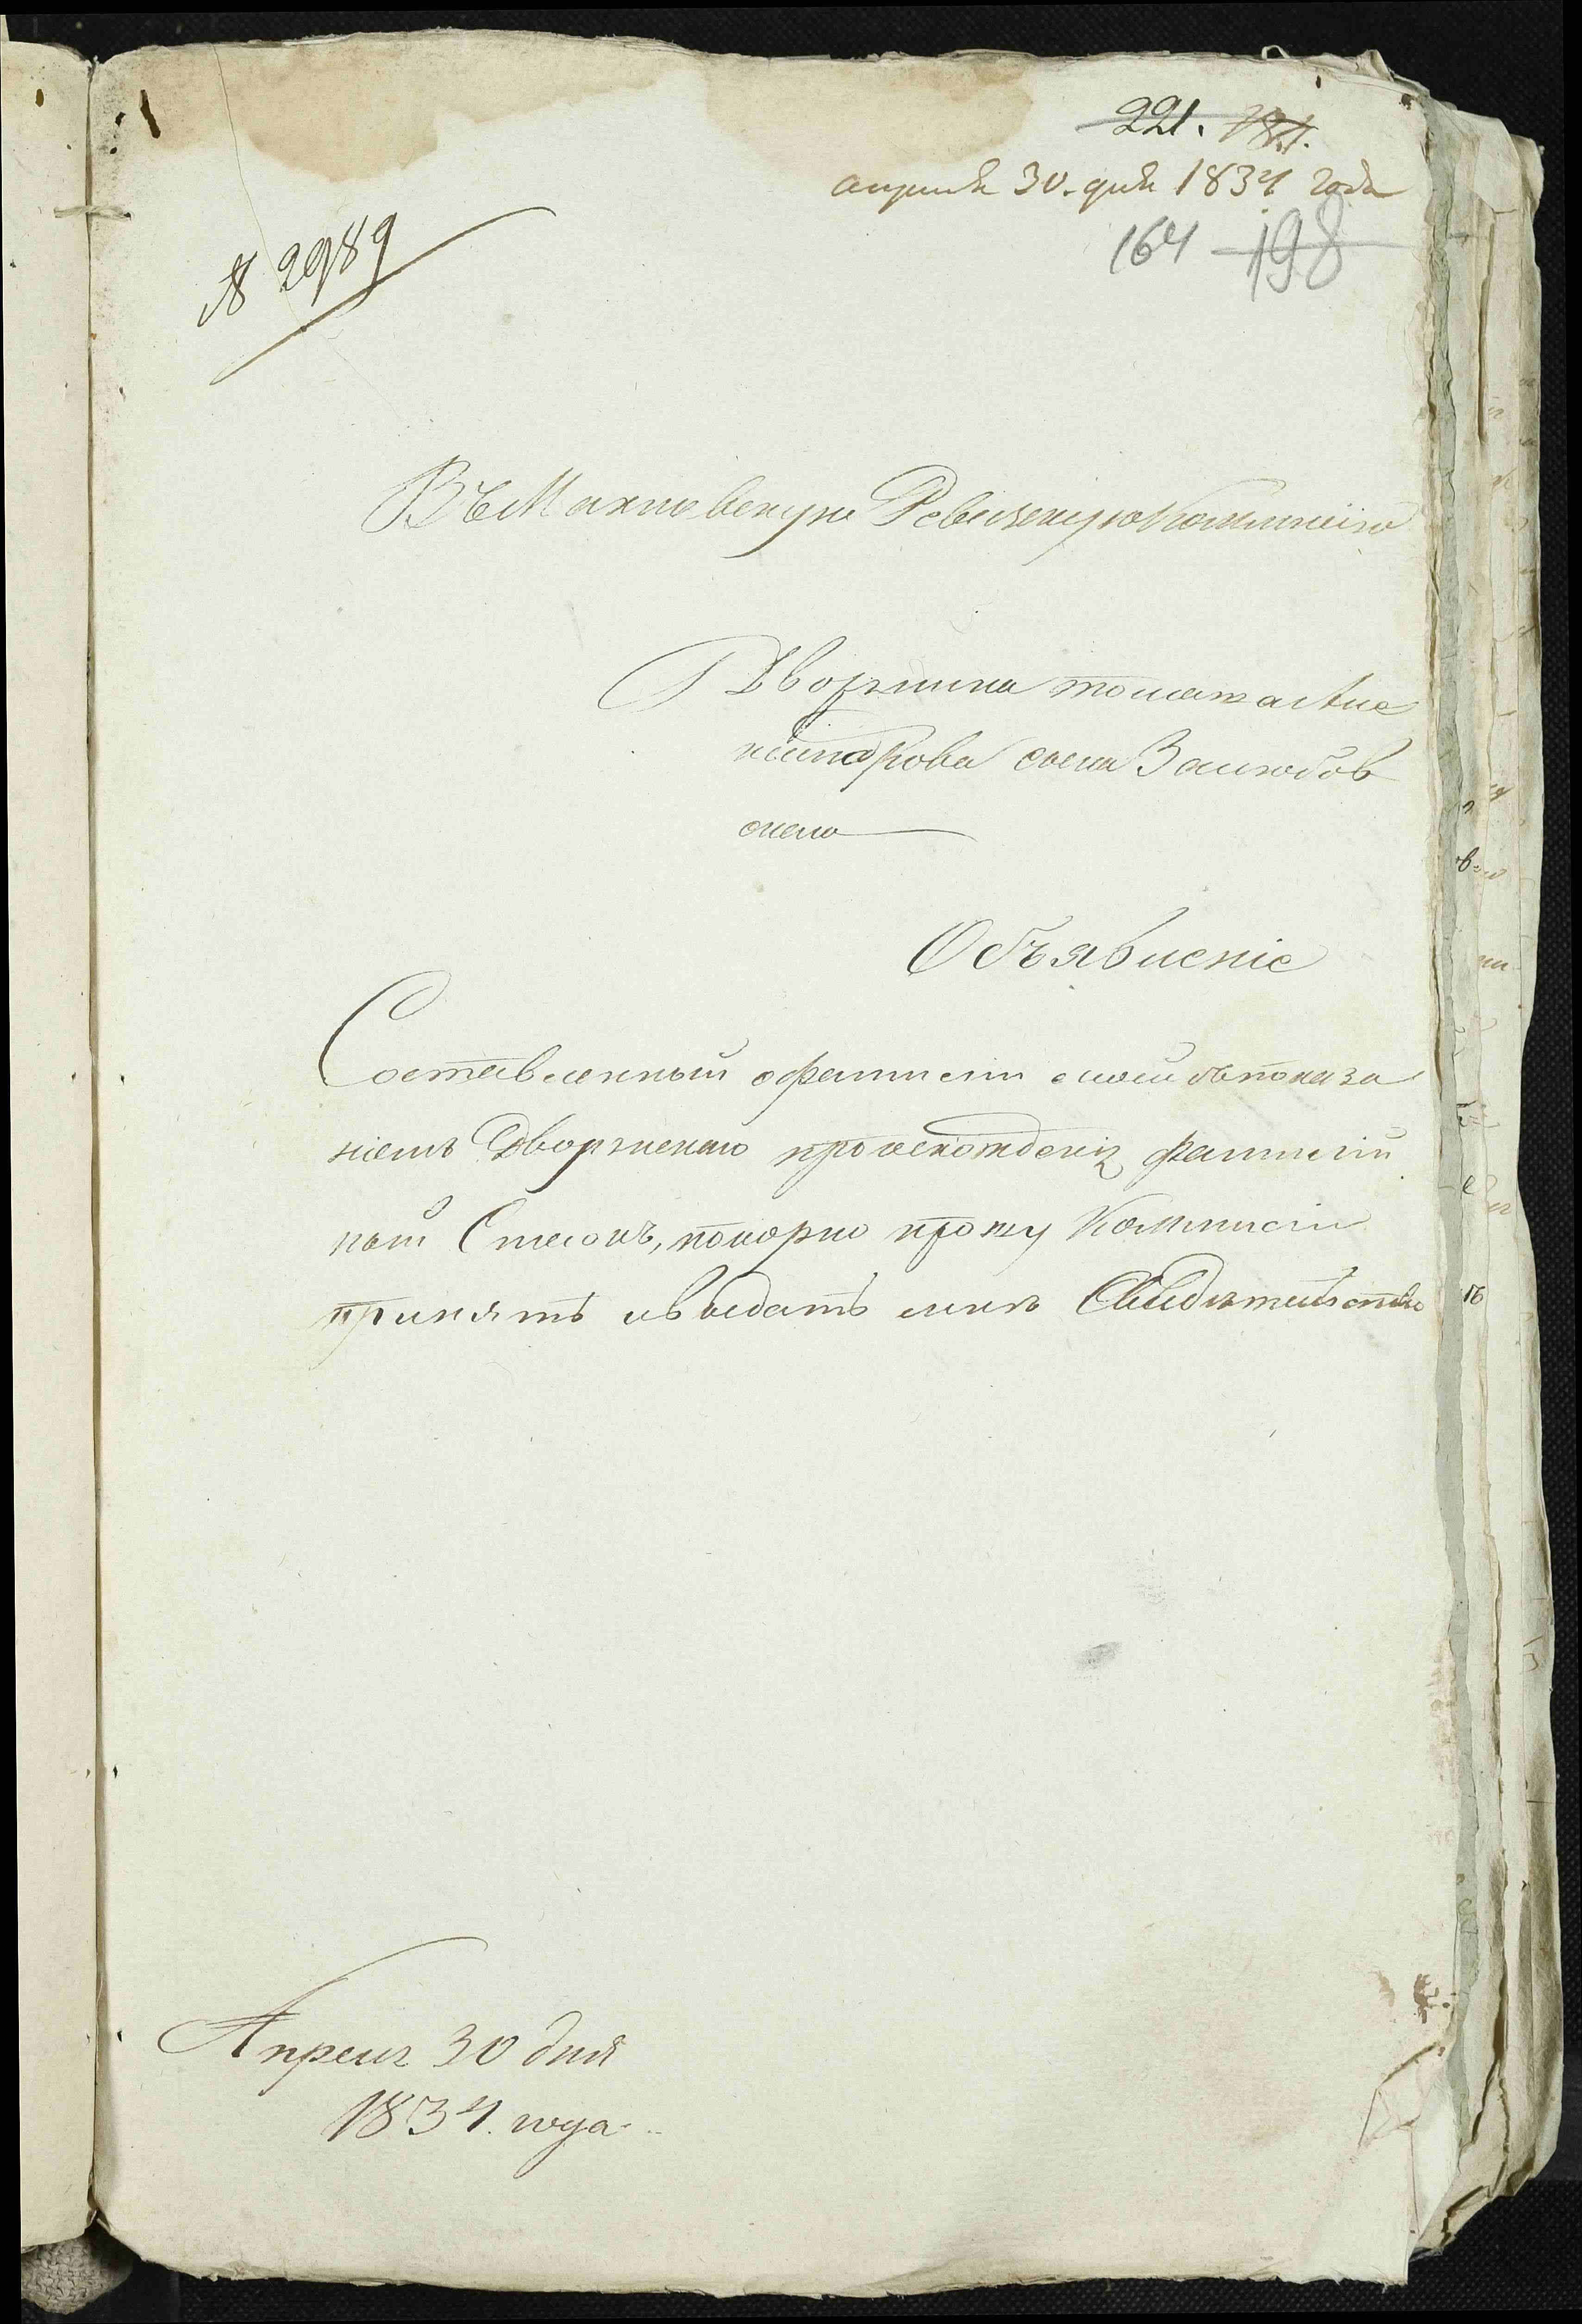 221. 181.
апреля 30. дня 1834 года
164 198
№ 2989
Въ Махновскую Ревизскую Коммисію
Дворянина Игната Але
ксандрова сына Залюбов
скаго
Объявленіе
Составленный о фамиліи моей съ показа
ніемъ Дворянскаго происхожденія фамилій
ный Списокъ, покорно прошу Коммисіи
принять и выдать мнѣ Свидѣтельство
Апреля 30 дня
1834. года